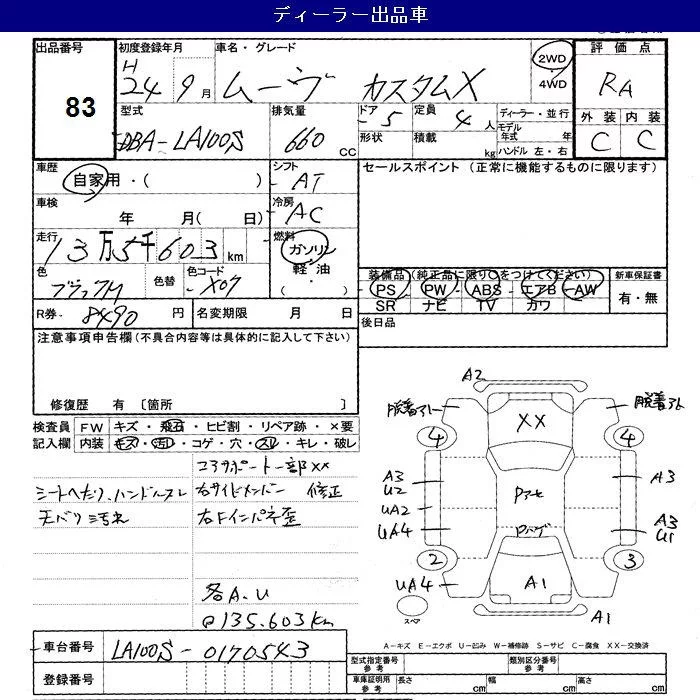 ディーラー出品車
出品番号
83
初度登録年月
H
24 9月
車名・グレード
ムーヴ カスタムX
2WD
・
4WD
評価点
RA
外装 内装
C C
型式
DBA-LA100S
排気量
660 CC
ドア
5
形状
定員
4人
積載
kg
ディーラー・並行
モデル年式 年
ハンドル 左・右
車歴
自家用・( )
シフト
AT
セールスポイント (正常に機能するものに限ります)
車検
年 月( 日)
冷房
AC
走行
13万5千603 km
燃料
ガソリン
軽油
・
色
ブラックM
色替
色コード
X07
装備品 (純正品に限り○をつけてください)
新車保証書
PS PW ABS エアB AW
有・無
SR ナビ TV カワ
R券
8490 円
名変期限 月 日
後日品
注意事項申告欄 (不具合内容等は具体的に記入して下さい)
修復歴 有 〔箇所 〕
検査員記入欄
FW キズ・飛石・ヒビ割・リペア跡・×要
内装 キズ・汚れ・コゲ・穴・スレ・キレ・破レ
コアサポート一部××
シートヘたり、ハンドルスレ
右サイドメンバー 修正
天バリ汚れ
右Fインパネ歪
各A.U
135.603km
A2
4
4
XX
A3
U2
UA2
UA4
A3
A3
U1
2
3
UA4
A1
A1
スペア
A-キズ E-エクボ U-凹み W-補修跡 S-サビ C-腐食 XX-交換済
車台番号
LA100S-0170543
登録番号
型式指定番号
参考
類別区分番号
参考
車庫証明用
参考
長さ cm
幅 cm
高さ cm